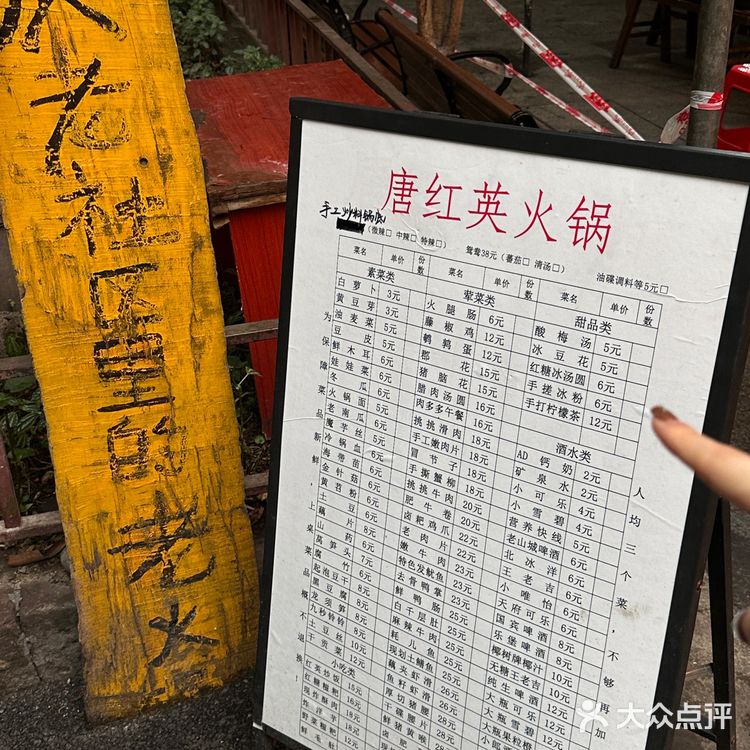 老社区里的老
唐红英火锅
手工炒料锅底
(微辣□ 中辣□ 特辣□) 鸳鸯38元(番茄□ 清汤□) 油碟调料等5元□
菜名 单价 份数 菜名 单价 份数 菜名 单价 份数
素菜类
白萝卜 3元
黄豆芽 3元
油麦菜 5元
豆皮 5元
鲜木耳 6元
娃娃菜 6元
冬瓜 6元
火锅面 5元
老南瓜 5元
魔芋丝 5元
冷锅血 6元
海带苗 6元
金针菇 6元
黄苕粉 6元
土豆 6元
藕片 8元
山药 6元
莴笋头 7元
腐竹 6元
起泡豆干 8元
黑豆腐 8元
龙须笋 8元
九秒铃铃 8元
土豆丝 10元
干贡菜 12元
小吃类
红英炒饭 15元
红糖糍粑 16元
现炸酥肉 18元
炸洋芋
野菜糍粑
鲜毛肚
荤菜类
火腿肠 6元
藤椒鸡 12元
鹌鹑蛋 12元
郡花 15元
猪脑花 15元
腊肉汤圆 16元
肉多多午餐 16元
挑挑滑肉 18元
手工嫩肉片 18元
冒节子 18元
手撕蟹柳 18元
挑挑牛肉 20元
肥牛卷 20元
卤粑鸡爪 22元
老肉片 22元
嫩牛肉 23元
特色发鱿鱼 23元
去骨鸭掌 23元
鲜鸭肠 25元
白千层肚 25元
麻辣牛肉 25元
耗儿鱼 25元
现划土鳝鱼
藕夹虾滑
鱼籽虾滑
厚切猪腰
干碟腰片
鲜猪黄喉
卤肥
甜品类
酸梅汤 5元
冰豆花 5元
红糖冰汤圆 6元
手搓冰粉 6元
手打柠檬茶 12元
酒水类
AD钙奶 2元
矿泉水 2元
小可乐 4元
小雪碧 4元
营养快线 5元
老山城啤酒 5元
北冰洋 6元
王老吉 6元
小唯怡 6元
天府可乐 6元
国宾啤酒 8元
乐堡啤酒 8元
椰树牌椰汁 10元
无糖王老吉 10元
纯生啤酒 12元
大瓶可乐 12元
大瓶雪碧
大瓶果粒橙
小郎
为保障菜品新鲜,上桌菜品概不退换
人均三个菜,不够再加
大众点评